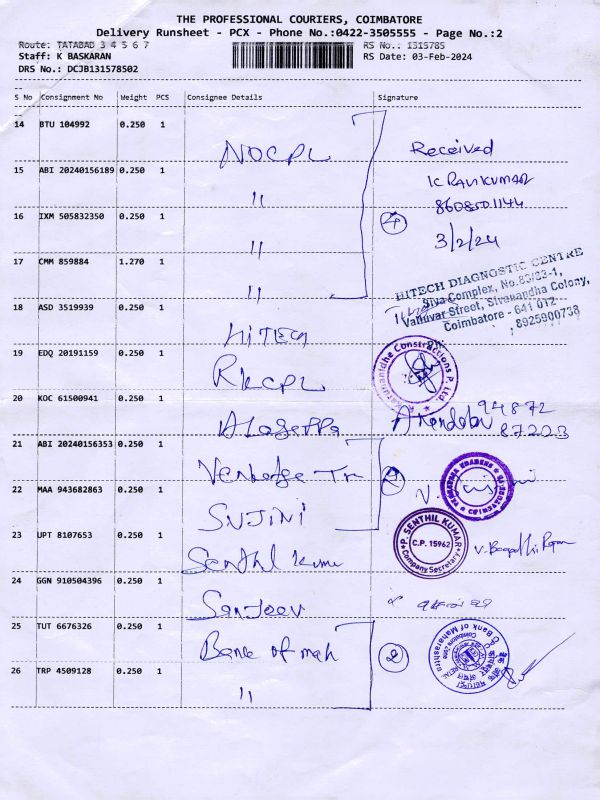 THE PROFESSIONAL COURIERS, COIMBATORE
Delivery Runsheet - PCX - Phone No.:0422-3505555 - Page No.:2
Route: TATABAD 3 4 5 6 7
RS No.: 1315785
Staff: K BASKARAN
RS Date: 03-Feb-2024
DRS No.: DCJB131578502
S No Consignment No Weight PCS Consignee Details Signature
14 BTU 104992 0.250 1 NOCPL Received
15 ABI 20240156189 0.250 1 " K RAVIKUMAR
8608501144
16 IXM 505832350 0.250 1 " 4 3/2/24
17 CMM 859884 1.270 1 "
HITECH DIAGNOSTIC CENTRE
Siva Complex, No.83/83-1,
Valluvar Street, Sivanandha Colony,
Coimbatore - 641 012
8925900738
18 ASD 3519939 0.250 1 HITECH
19 EDQ 20191159 0.250 1 RKCPL
Constructions P. Ltd.
20 KOC 61500941 0.250 1 Alagappa Anandabu 94872
87223
21 ABI 20240156353 0.250 1
22 MAA 943682863 0.250 1 SUJINI
23 UPT 8107653 0.250 1 Senthil Kumar
P. SENTHIL KUMAR
C.P. 15962
Company Secretary
24 GGN 910504396 0.250 1 Sanjeev
25 TUT 6676326 0.250 1 Bank of mah 2
Bank of Maharashtra
26 TRP 4509128 0.250 1 "